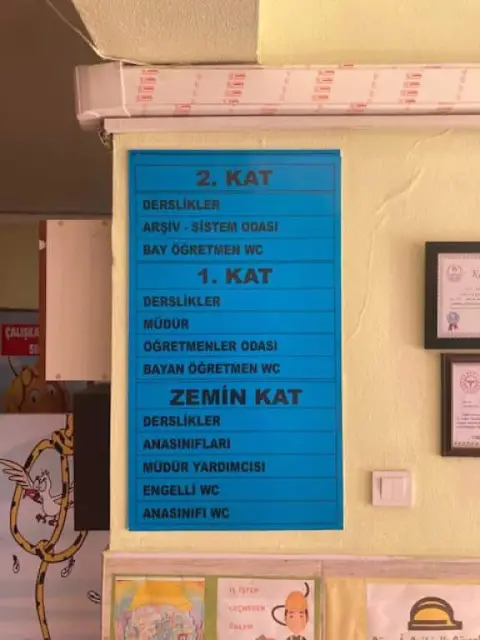 2. KAT
DERSLİKLER
ARŞİV - SİSTEM ODASI
BAY ÖĞRETMEN WC
1. KAT
DERSLİKLER
MÜDÜR
ÖĞRETMENLER ODASI
BAYAN ÖĞRETMEN WC
ZEMİN KAT
DERSLİKLER
ANASINIFLARI
MÜDÜR YARDIMCISI
ENGELLİ WC
ANASINIFI WC
İŞ İŞTEN
GEÇMEDEN
ÖNLEM